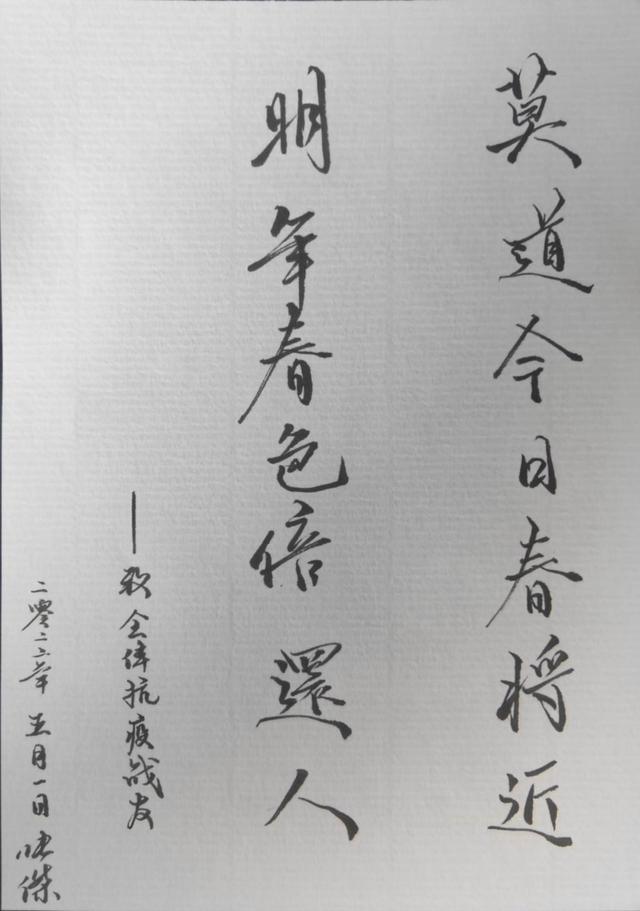 莫道今日春将近
明年春色倍還人
——致全体抗疫战友
二零二二年五月一日 傑